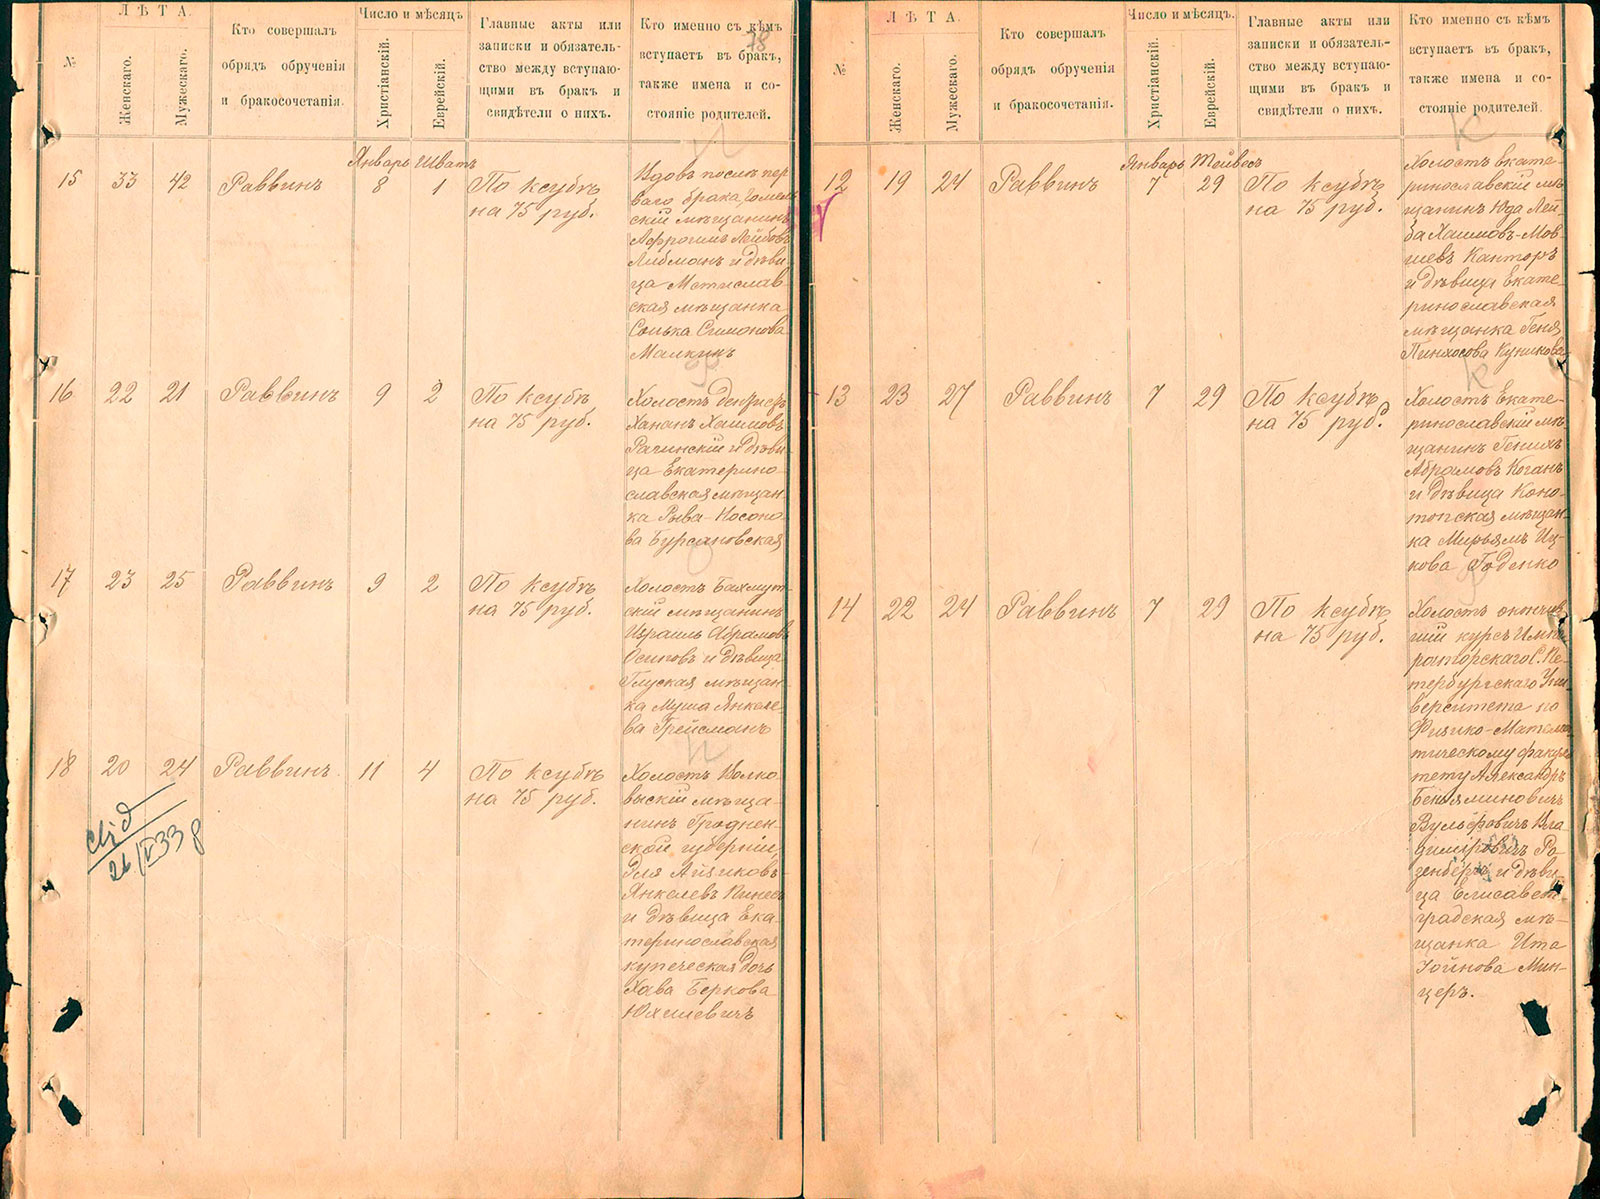 18
№
ЛѢТА.
Женскаго.
Мужескаго.
Кто совершалъ
обрядъ обрученія
и бракосочетанія.
Число и мѣсяцъ
Христіанскій.
Еврейскій.
Главные акты или
записки и обязатель-
ство между вступаю-
щими въ бракъ и
свидѣтели о нихъ.
Кто именно съ кѣмъ
вступаетъ въ бракъ,
также имена и со-
стояніе родителей.
Январь Шватъ
15 33 42 Раввинъ 8 1
По ксубѣ
на 75 руб.
Вдовъ послѣ пер
ваго брака, Гомель
скій мѣщанинъ
Афроимъ Лейбовъ
Либманъ и дѣви
ца Мстислав
ская мѣщанка
Сонька Симонова
Малкинъ
16 22 21 Раввинъ 9 2
По ксубѣ
на 75 руб.
Холостъ
Хананъ Хаимовъ
Рачинскій и дѣви
ца Екатерино
славская мѣщан
ка Рыва-Носоно
ва Бурсановская
17 23 25 Раввинъ 9 2
По ксубѣ
на 75 руб.
Холостъ Бахмут
скій мѣщанинъ
Израиль Абрамовъ
Осиповъ и дѣвица
Глуская мѣщан
ка Муша Янкеле
ва Грейсманъ
18 20 24 Раввинъ 11 4
По ксубѣ
на 75 руб.
Холостъ Волко
выскій мѣща
нинъ Гроднен
ской губерніи,
Эля Айзиковъ
Янкелевъ Пинесъ
и дѣвица Ека
теринославская
купеческая дочь
Хава Беркова
Юхилевичъ
26/IV 33
№
ЛѢТА.
Женскаго.
Мужескаго.
Кто совершалъ
обрядъ обрученія
и бракосочетанія.
Число и мѣсяцъ.
Христіанскій.
Еврейскій.
Главные акты или
записки и обязатель-
ство между вступаю-
щими въ бракъ и
свидѣтели о нихъ.
Кто именно съ кѣмъ
вступаетъ въ бракъ,
также имена и со-
стояніе родителей.
Январь Тейвесъ
12 19 24 Раввинъ 7 29
По ксубѣ
на 75 руб.
Холостъ Екате-
ринославскій мѣ
щанинъ Юда Лей
ба Хаимовъ-Мов
шевъ Канторъ
и дѣвица Екате-
ринославская
мѣщанка Геня
Пинхосова Куникова
13 23 27 Раввинъ 7 29
По ксубѣ
на 75 руб.
Холостъ Екате-
ринославскій мѣ
щанинъ Генихъ
Абрамовъ Коганъ
и дѣвица Коно-
топская мѣщан-
ка Мирьямъ Иц-
кова Годенко
14 22 24 Раввинъ 7 29
По ксубѣ
на 75 руб.
Холостъ окончив
шій курсъ Импе
раторскаго С. Пе-
тербургскаго Уни
верситета по
Физико-Матема
тическому факуль
тету Александръ
Беніяминовичъ
Вульфовичъ Вла
диміровичъ Ро
зенбергъ и дѣви
ца Елисавет-
градская мѣ-
щанка Ита
Іойнова Мин-
церъ.